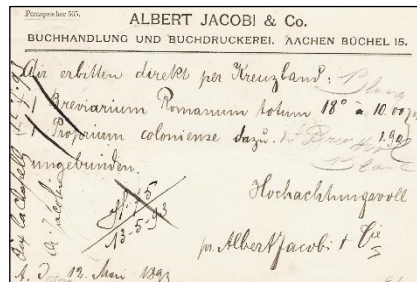 Fernsprecher 565.
ALBERT JACOBI & Co.
BUCHHANDLUNG UND BUCHDRUCKEREI. AACHEN BÜCHEL 15.
Wir erbitten direkt per Kreuzband:
1 Breviarium Romanum totum 18° à 10.00
1 Proprium coloniense dazu. 1.90
ungebunden.
Hochachtungsvoll
13-5-93
pr. Albert Jacobi & Cie
A. J. 12. Mai 1893
Aix la chapelle
A. Jacobi